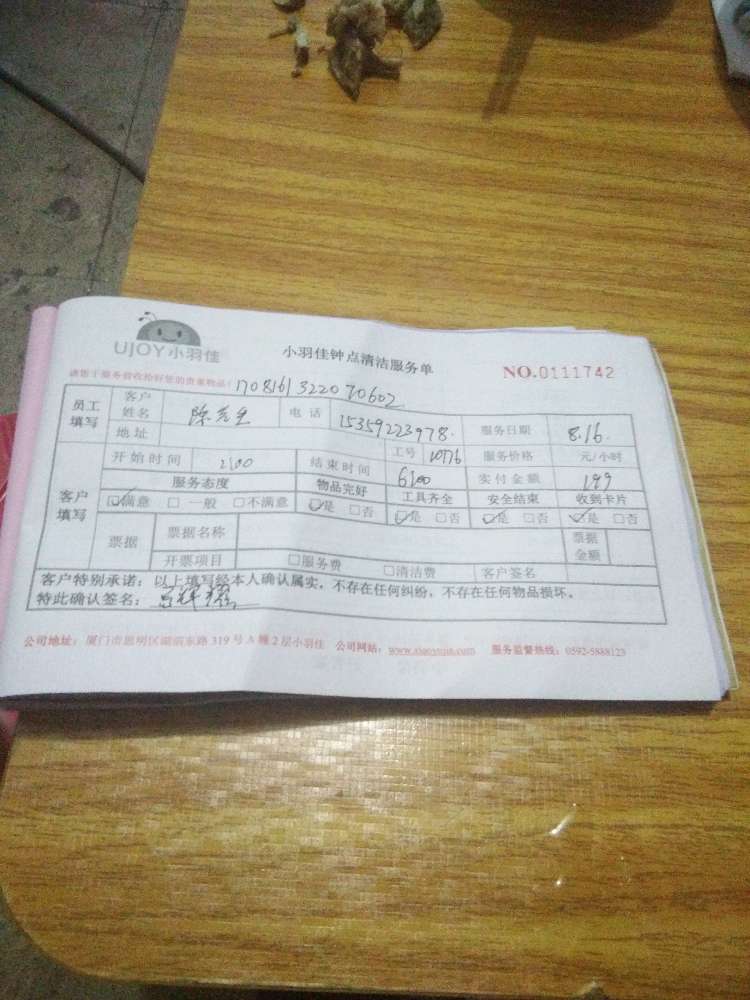 UJOY小羽佳
小羽佳钟点清洁服务单
NO.0111742
请您于服务前收拾好您的贵重物品!
170816132207 0602
员工填写 客户姓名 电话 15359223978. 服务日期 8.16
地址 工号 10776 服务价格 元/小时
客户填写 开始时间 2:00 结束时间 6:00 实付金额 199
服务态度 物品完好 工具齐全 安全结束 收到卡片
☑满意 □一般 □不满意 ☑是 □否 ☑是 □否 ☑是 □否 ☑是 □否
票据 票据名称 票据金额
开票项目 □服务费 □清洁费 客户签名
客户特别承诺：以上填写经本人确认属实，不存在任何纠纷，不存在任何物品损坏。
特此确认签名：
公司地址：厦门市思明区湖滨东路319号A幢2层小羽佳 公司网站：www.xiaoyujia.com 服务监督热线：0592-5888123